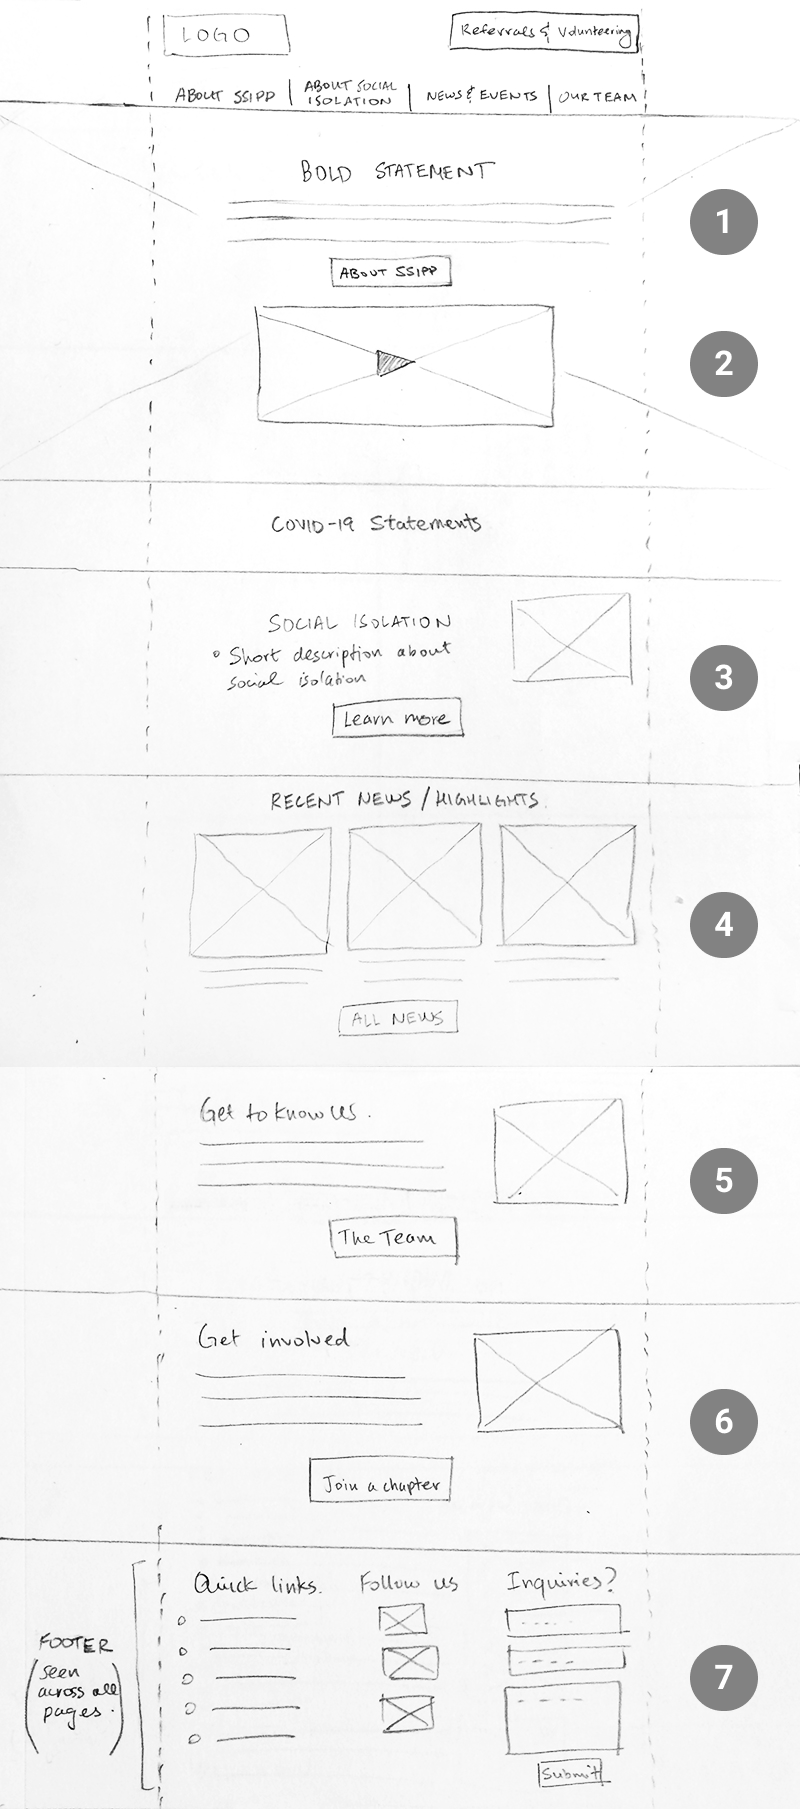 LOGO
Referrals & Volunteering
ABOUT SSIPP
ABOUT SOCIAL
ISOLATION
NEWS & EVENTS
OUR TEAM
BOLD STATEMENT
1
ABOUT SSIPP
2
COVID-19 Statements
SOCIAL ISOLATION
Short description about
social isolation
3
Learn more
RECENT NEWS / HIGHLIGHTS
4
ALL NEWS
Get to know us.
5
The Team
Get involved
6
Join a chapter
Quick links.
Follow us
Inquiries?
FOOTER
(seen
across all
pages.)
7
Submit